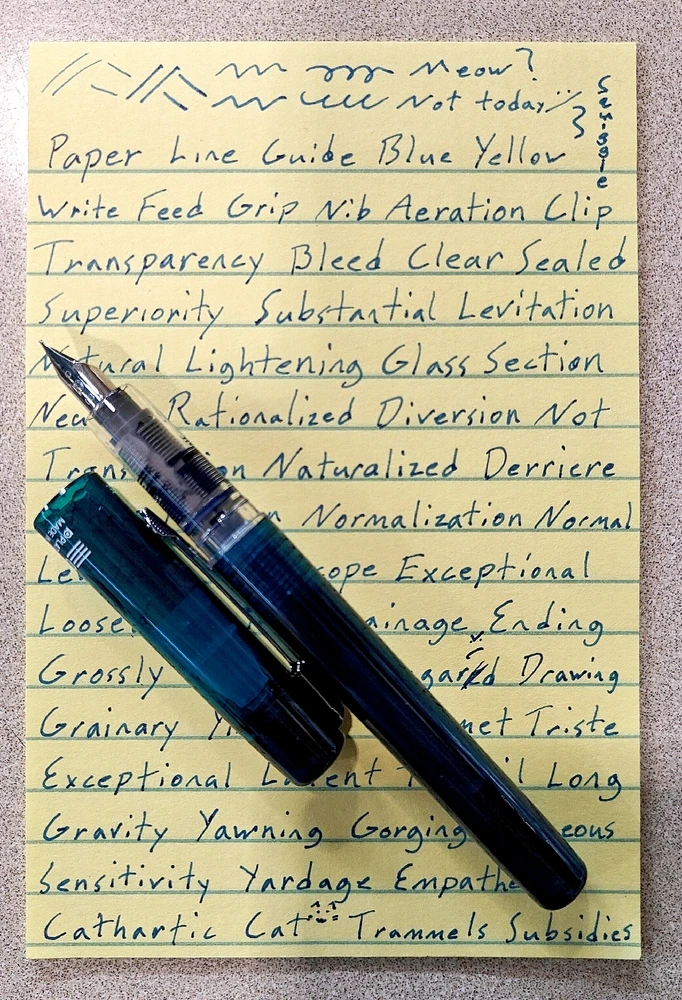 Meow?
Not today
Squiggle
Paper Line Guide Blue Yellow
Write Feed Grip Nib Aeration Clip
Transparency Bleed Clear Sealed
Superiority Substantial Levitation
Natural Lightening Glass Section
Rationalized Diversion Not
Naturalized Derriere
Normalization Normal
Exceptional
Ending
Grossly Drawing
Grainary Triste
Exceptional Long
Gravity Yawning Gorging
Sensitivity Yardage
Cathartic Cat Trammels Subsidies